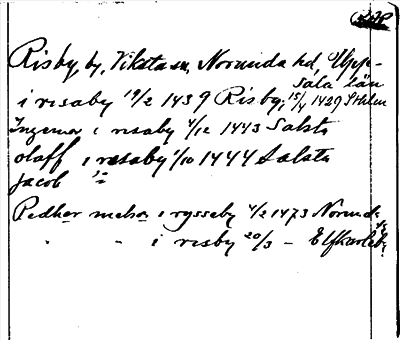 Risby, by, Viksta sn, Norunda hd, Upp-
sala län
i risaby 19/2 1439 Risby, 15/4 1429 Sthlm
Ingemar i risaby 4/12 1443 Salsta
olaff i resaby 1/10 1444 Salsta
jacob "
Pedher mats i rysseby 4/2 1473 Norunda
" " i risby 20/3 - Elfkarleby